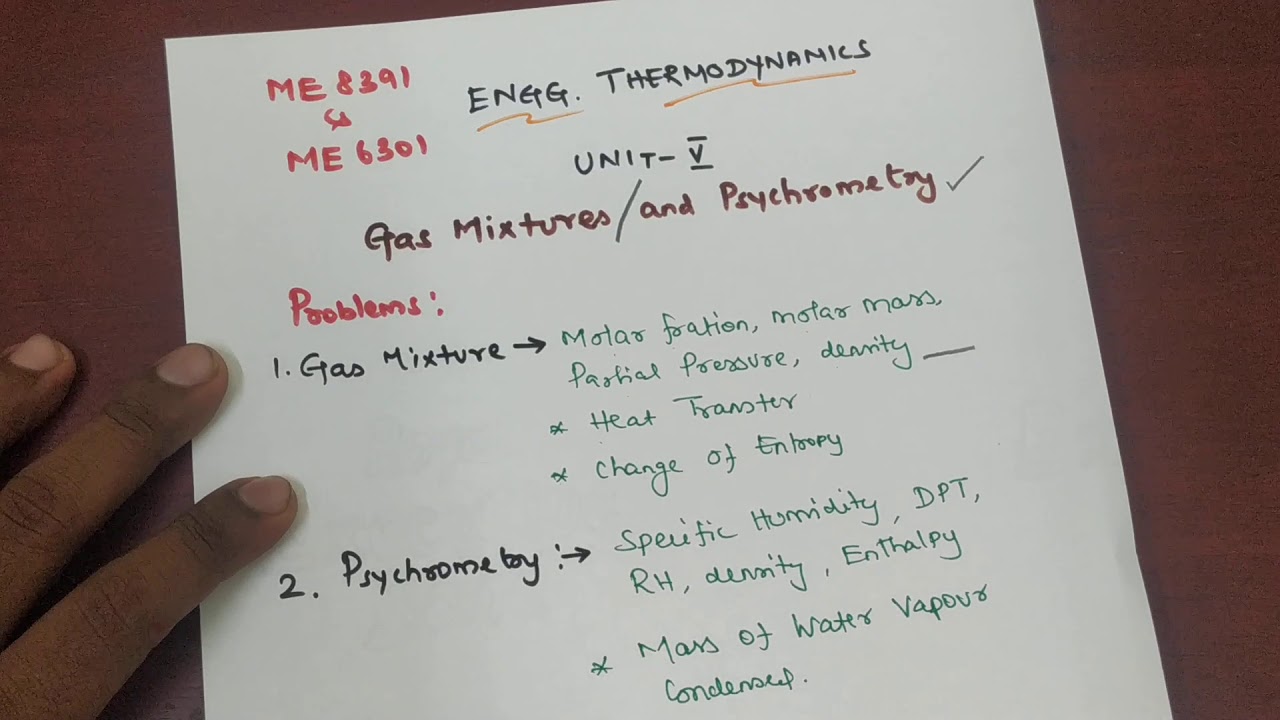 ME 8391
&
ME 6301
ENGG. THERMODYNAMICS
UNIT - V
Gas Mixtures / and Psychrometry ✓
Problems:
1. Gas Mixture → Molar fration, molar mass,
Partial Pressure, density —
* Heat Transter
* Change of Entropy
2. Psychrometry :→ Specific Humidity, DPT,
RH, density, Enthalpy
* Mass of Water Vapour
Condensed.